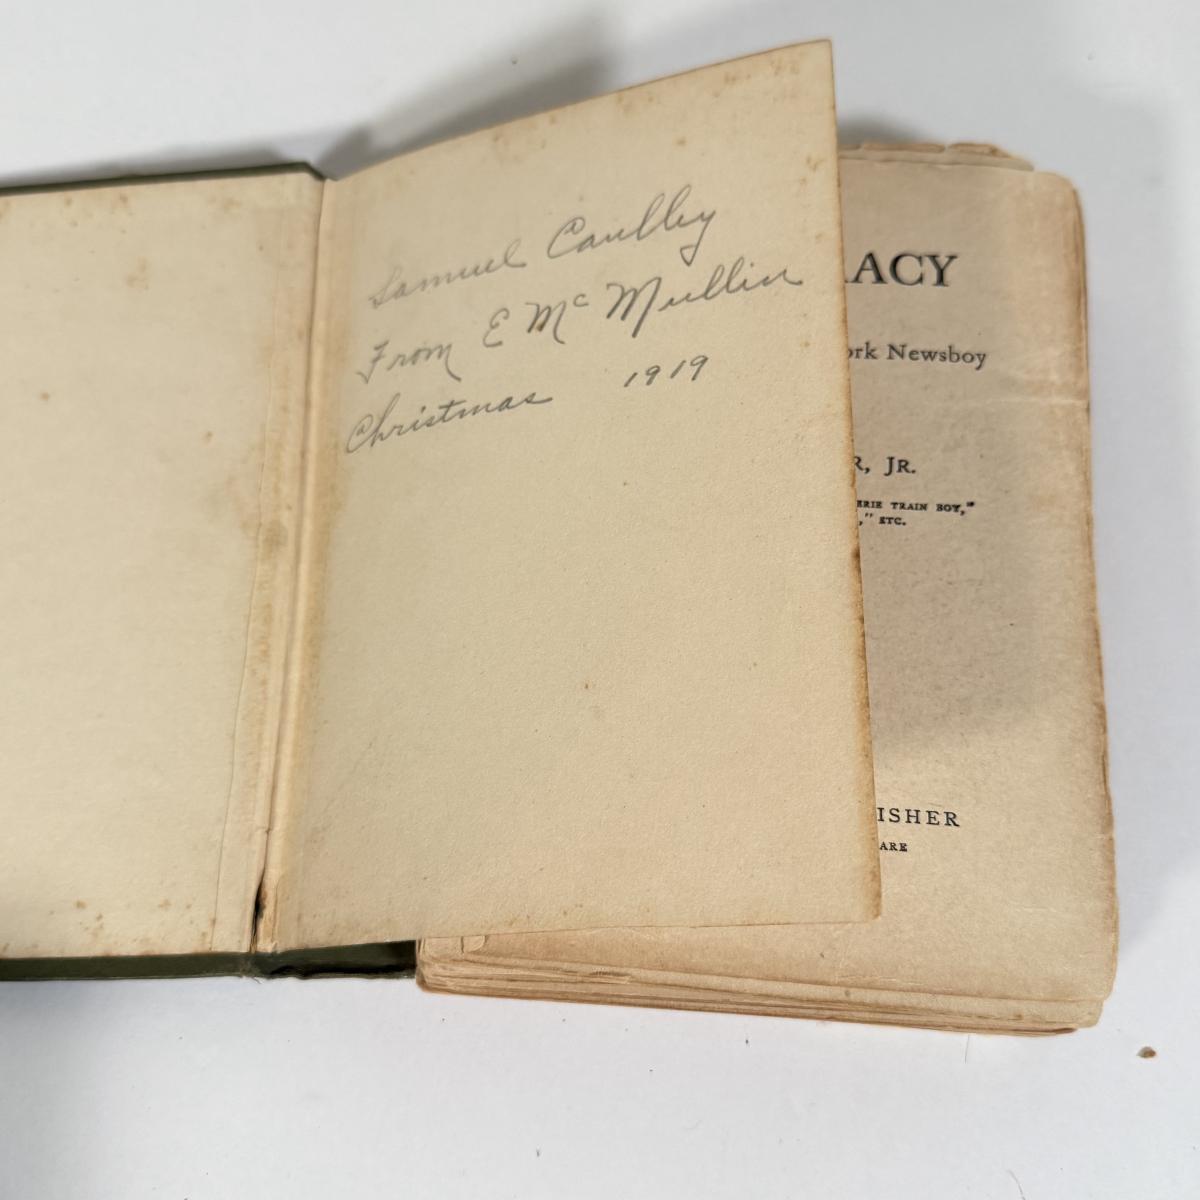 Samuel Caulley
From E Mc Mullin
Christmas 1919
RACY
ork Newsboy
R, JR.
ERIE TRAIN BOY,"
," ETC.
ISHER
ARE